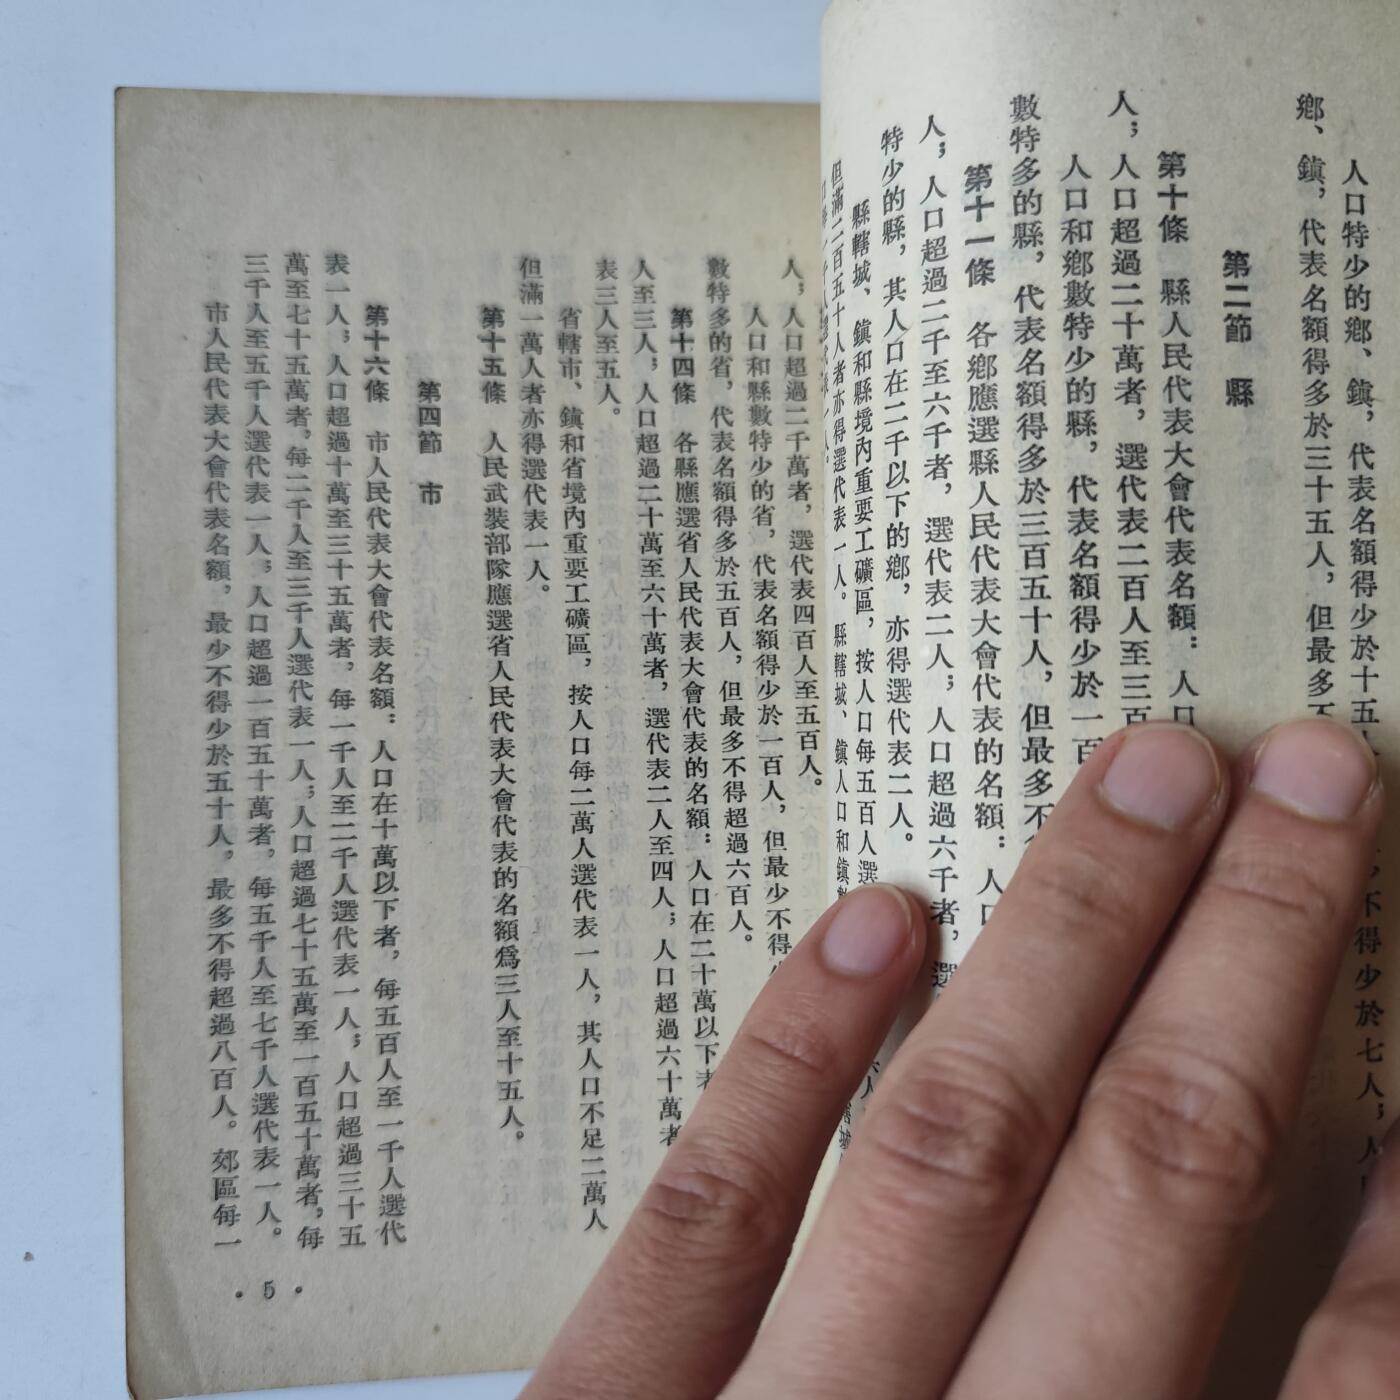 人口特少的鄉、鎮，代表名額得少於十五人
不得少於七人；人
鄉、鎮，代表名額得多於三十五人，但最多不
第二節　縣
第十條　縣人民代表大會代表名額：人口
人；人口超過二十萬者，選代表二百人至三百
人口和鄉數特少的縣，代表名額得少於一百
數特多的縣，代表名額得多於三百五十人，但最多不
第十一條　各鄉應選縣人民代表大會代表的名額：人口
人；人口超過二千至六千者，選代表二人；人口超過六千者，選
特少的縣，其人口在二千以下的鄉，亦得選代表二人。
縣轄城、鎮和縣境內重要工礦區，按人口每五百人選
但滿二百五十人者亦得選代表一人。縣轄城、鎮人口和鎮數
人；人口超過二千萬者，選代表四百人至五百人。
人口和縣數特少的省，代表名額得少於一百人，但最少不得
數特多的省，代表名額得多於五百人，但最多不得超過六百人。
第十四條　各縣應選省人民代表大會代表的名額：人口在二十萬以下者
人至三人；人口超過二十萬至六十萬者，選代表二人至四人；人口超過六十萬者
表三人至五人。
省轄市、鎮和省境內重要工礦區，按人口每二萬人選代表一人，其人口不足二萬人
但滿一萬人者亦得選代表一人。
第十五條　人民武裝部隊應選省人民代表大會代表的名額爲三人至十五人。
第四節　市
第十六條　市人民代表大會代表名額：人口在十萬以下者，每五百人至一千人選代
表一人；人口超過十萬至三十五萬者，每一千人至二千人選代表一人；人口超過三十五
萬至七十五萬者，每二千人至三千人選代表一人；人口超過七十五萬至一百五十萬者，每
三千人至五千人選代表一人；人口超過一百五十萬者，每五千人至七千人選代表一人。
市人民代表大會代表名額，最少不得少於五十人，最多不得超過八百人。郊區每一
• 5 •